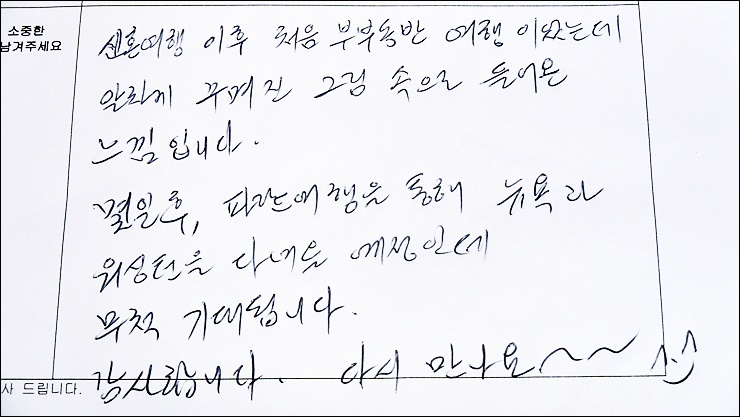 소중한
남겨주세요
신혼여행 이후 처음 부부동반 여행 이었는데
알차게 꾸며진 그림 속으로 들어온
느낌입니다.
몇일후, 파란여행을 통해 뉴욕과
워싱턴을 다녀올 예정인데
무척 기대됩니다.
감사합니다. 다시 만나요~~ ^^
사 드립니다.